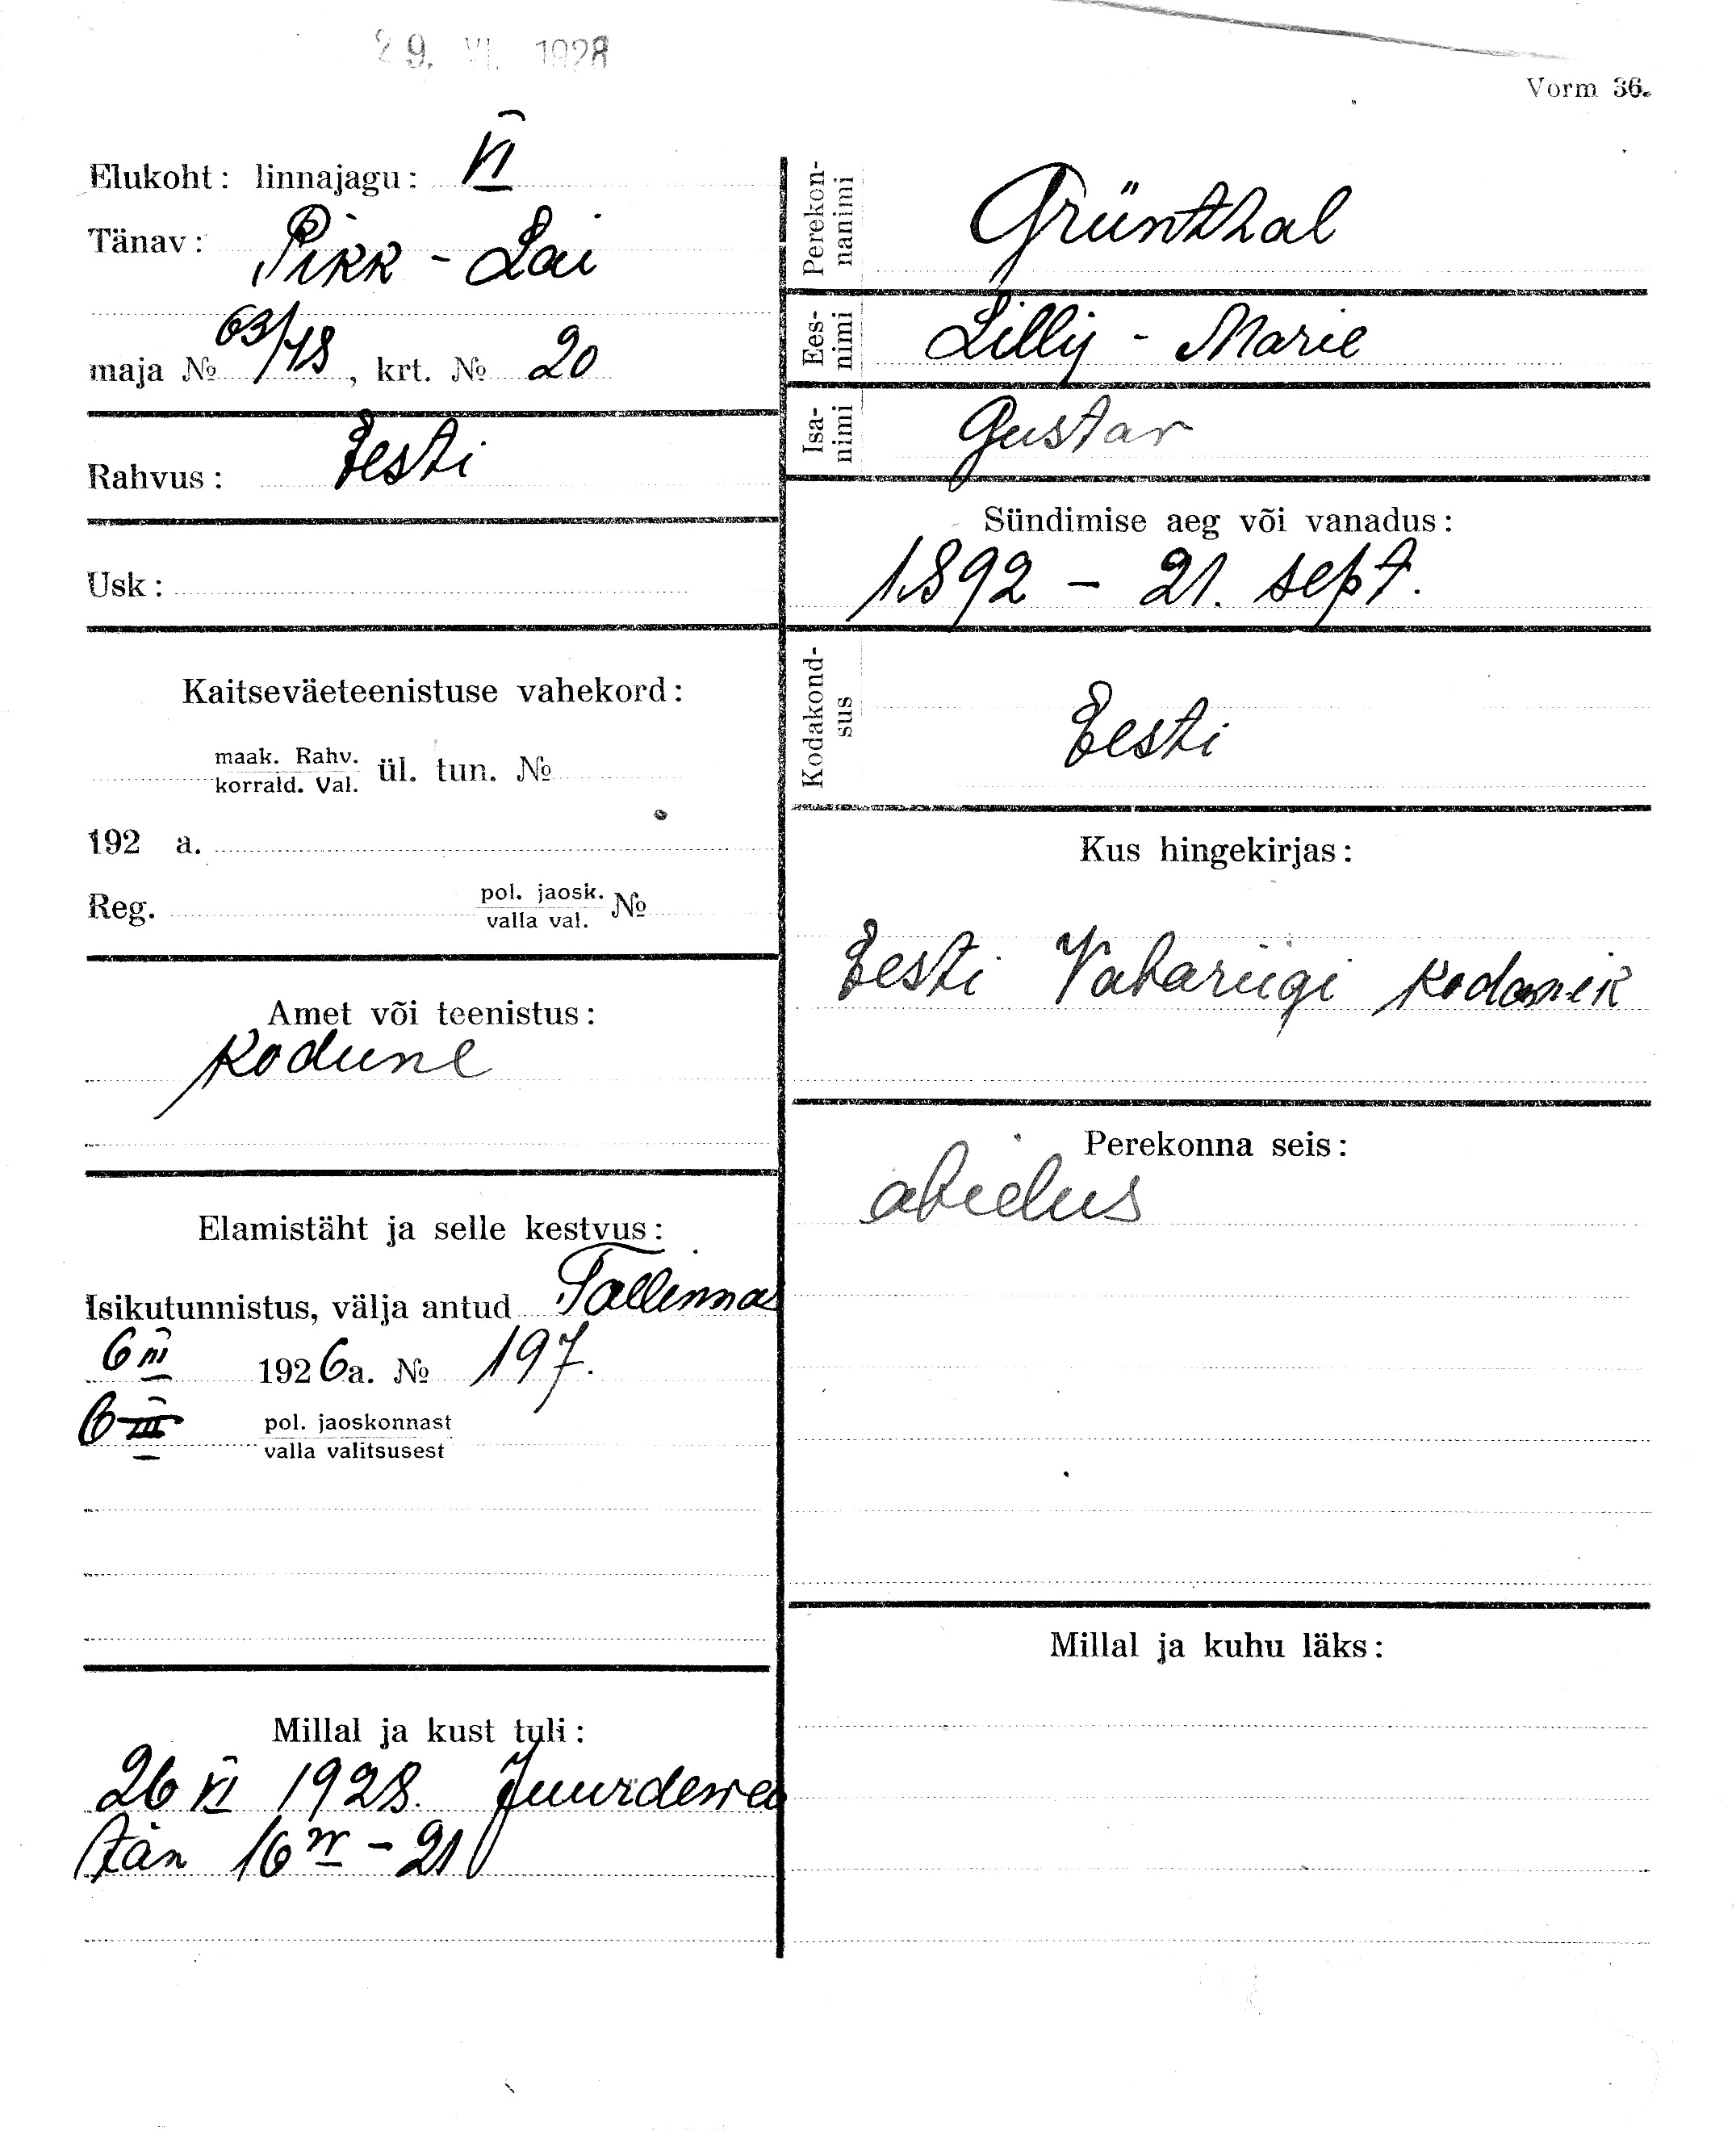 29. VI. 1928
Vorm 36.
Elukoht: linnajagu: VI
Tänav: Pikk - Lai
maja № 63/48, krt. № 20
Rahvus: Eesti
Usk:
Kaitseväeteenistuse vahekord:
maak. Rahv.
korrald. Val. ül. tun. №
192 a.
Reg. pol. jaosk. №
valla val.
Amet või teenistus:
kodune
Elamistäht ja selle kestvus:
Isikutunnistus, välja antud Tallinnas
6 III 1926 a. № 197.
6 III pol. jaoskonnast
valla valitsusest
Millal ja kust tuli:
26 VI 1928. Juurdevea
tän 16 - 21
Perekon-
nanimi
Grünthal
Ees-
nimi
Lilly - Marie
Isa-
nimi
Gustav
Sündimise aeg või vanadus:
1892 - 21. sept.
Kodakond-
sus
Eesti
Kus hingekirjas:
Eesti Vabariigi kodanik
Perekonna seis:
abielus
Millal ja kuhu läks: